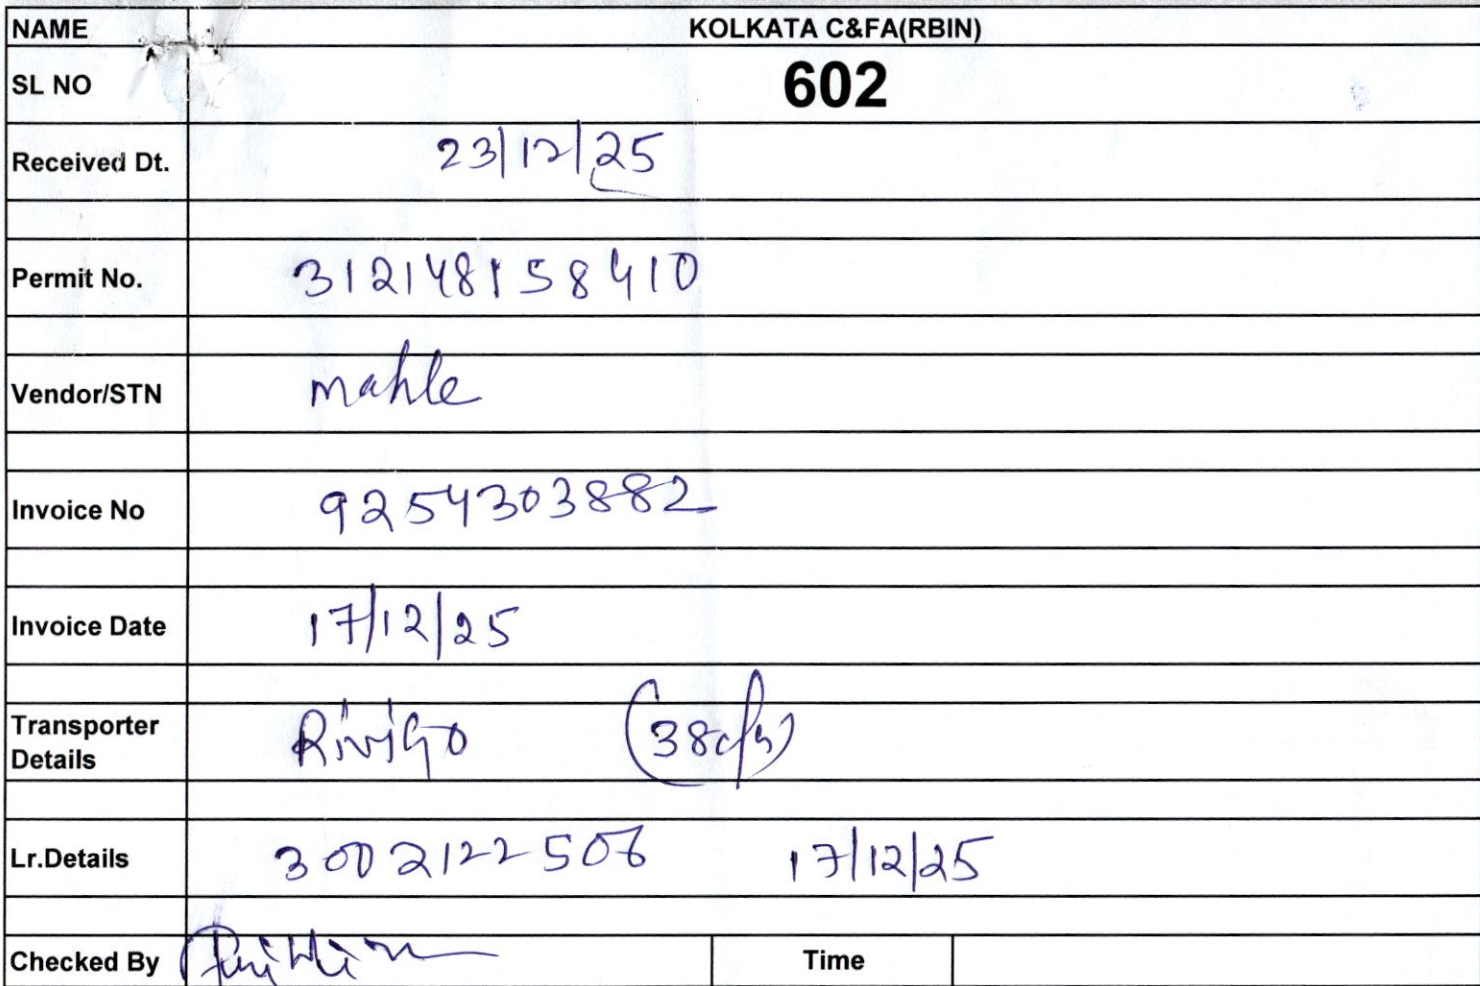 NAME KOLKATA C&FA(RBIN)
SL NO 602
Received Dt. 23/12/25
Permit No. 312148158410
Vendor/STN mahle
Invoice No 9254303882
Invoice Date 17/12/25
Transporter Details Rivigo (38c/s)
Lr.Details 3002122506 17/12/25
Checked By Time